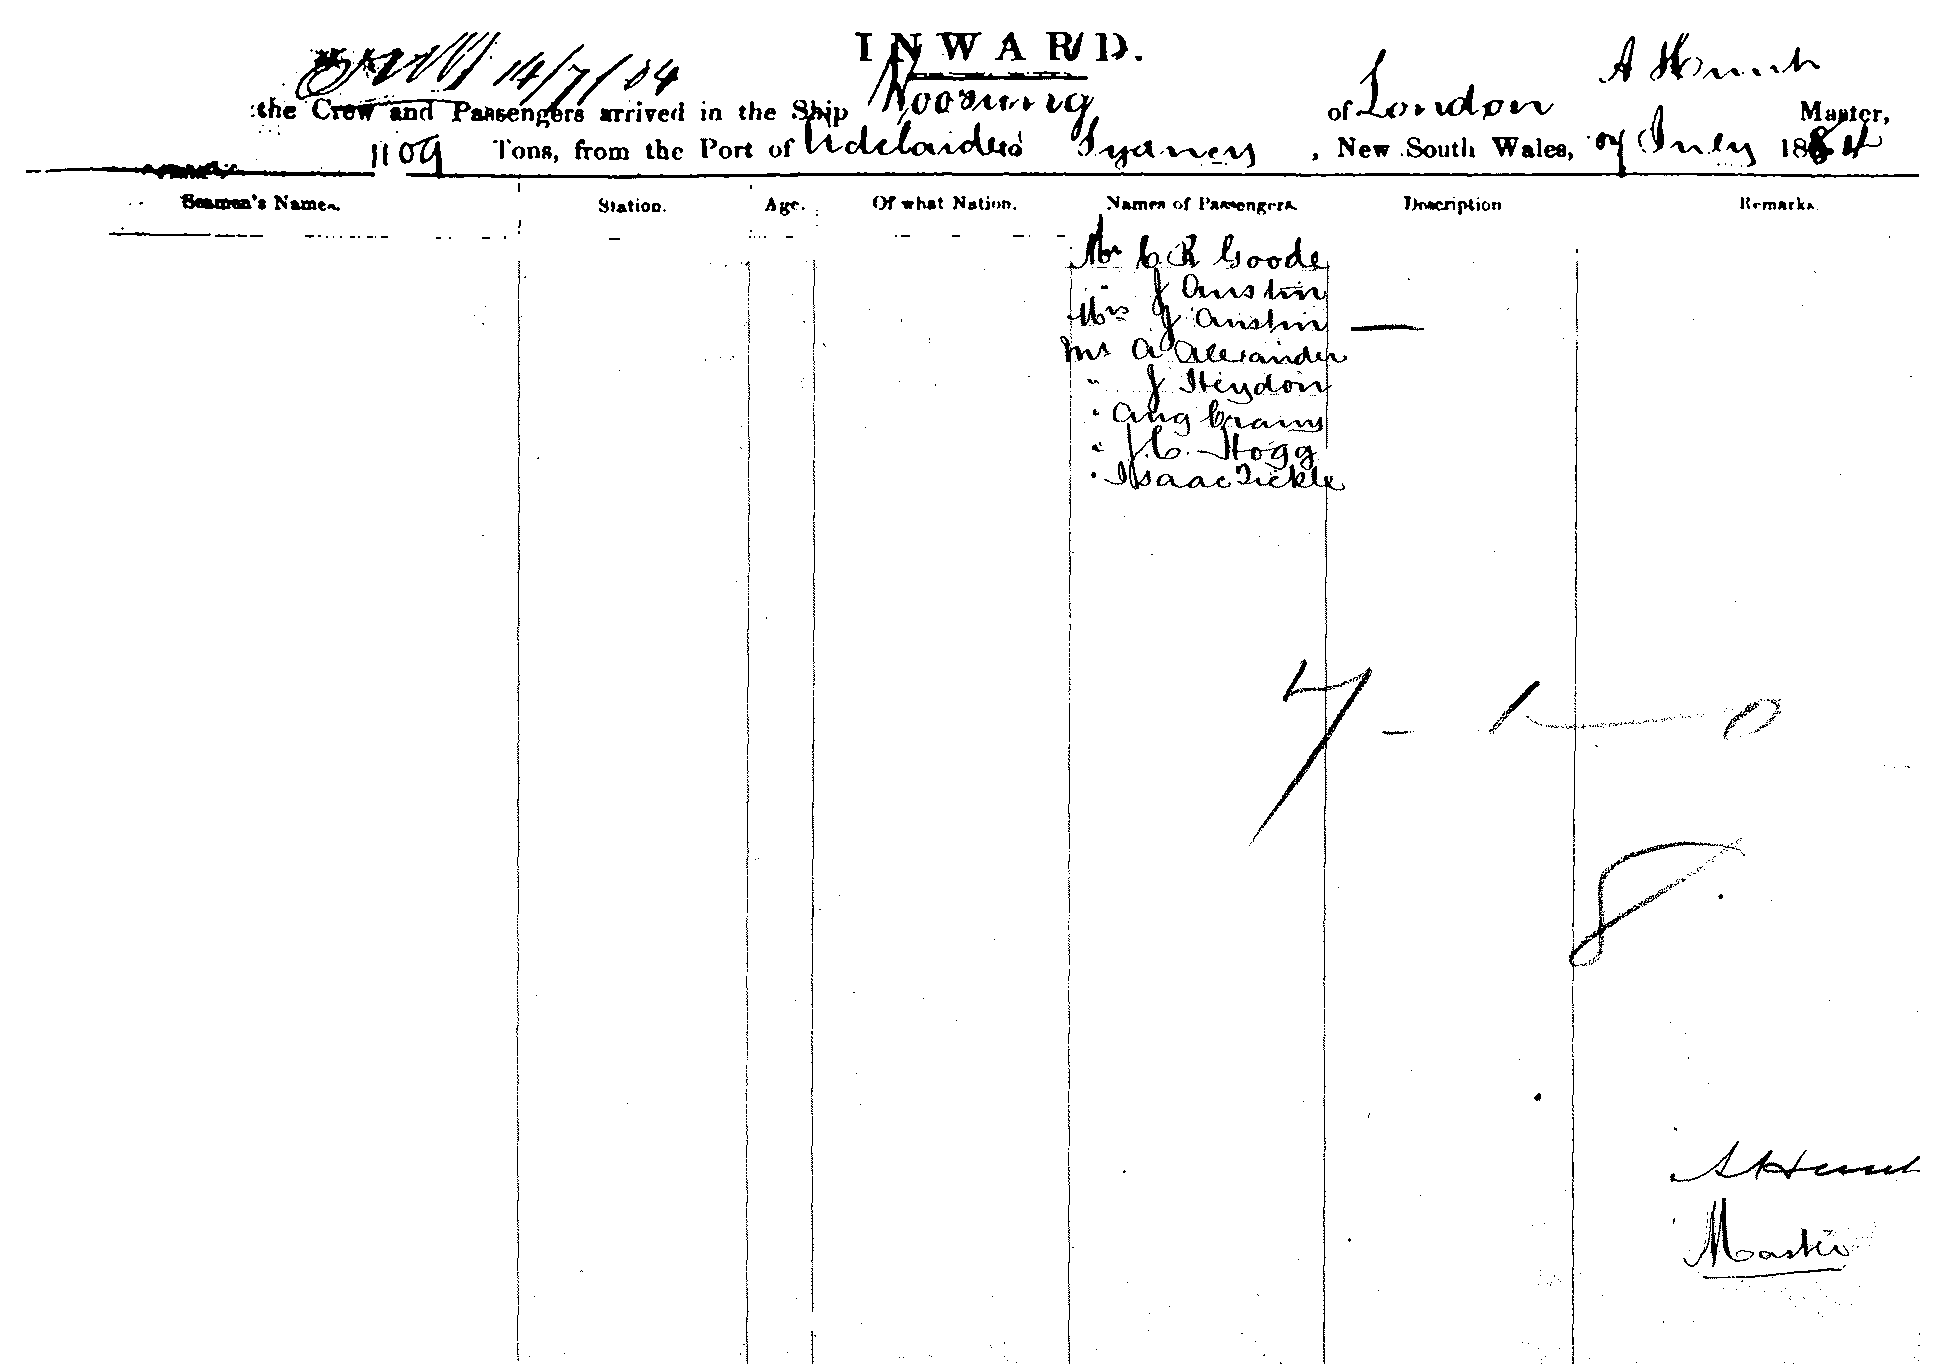 INWARD.
14/7/84
the Crew and Passengers arrived in the Ship Woosung of London A Hunt Master,
1109 Tons, from the Port of Adelaide to Sydney, New South Wales, July 1884
Seamen's Names. Station. Age. Of what Nation. Names of Passengers. Description Remarks.
Mr C R Goode
" J Austin
Mrs J Austin —
Mr A Alexander
" J Heydon
" Aug Crams
" J. C. Hogg
" Isaac Tickle
7 - 1 - 0
8
A Hunt
Master